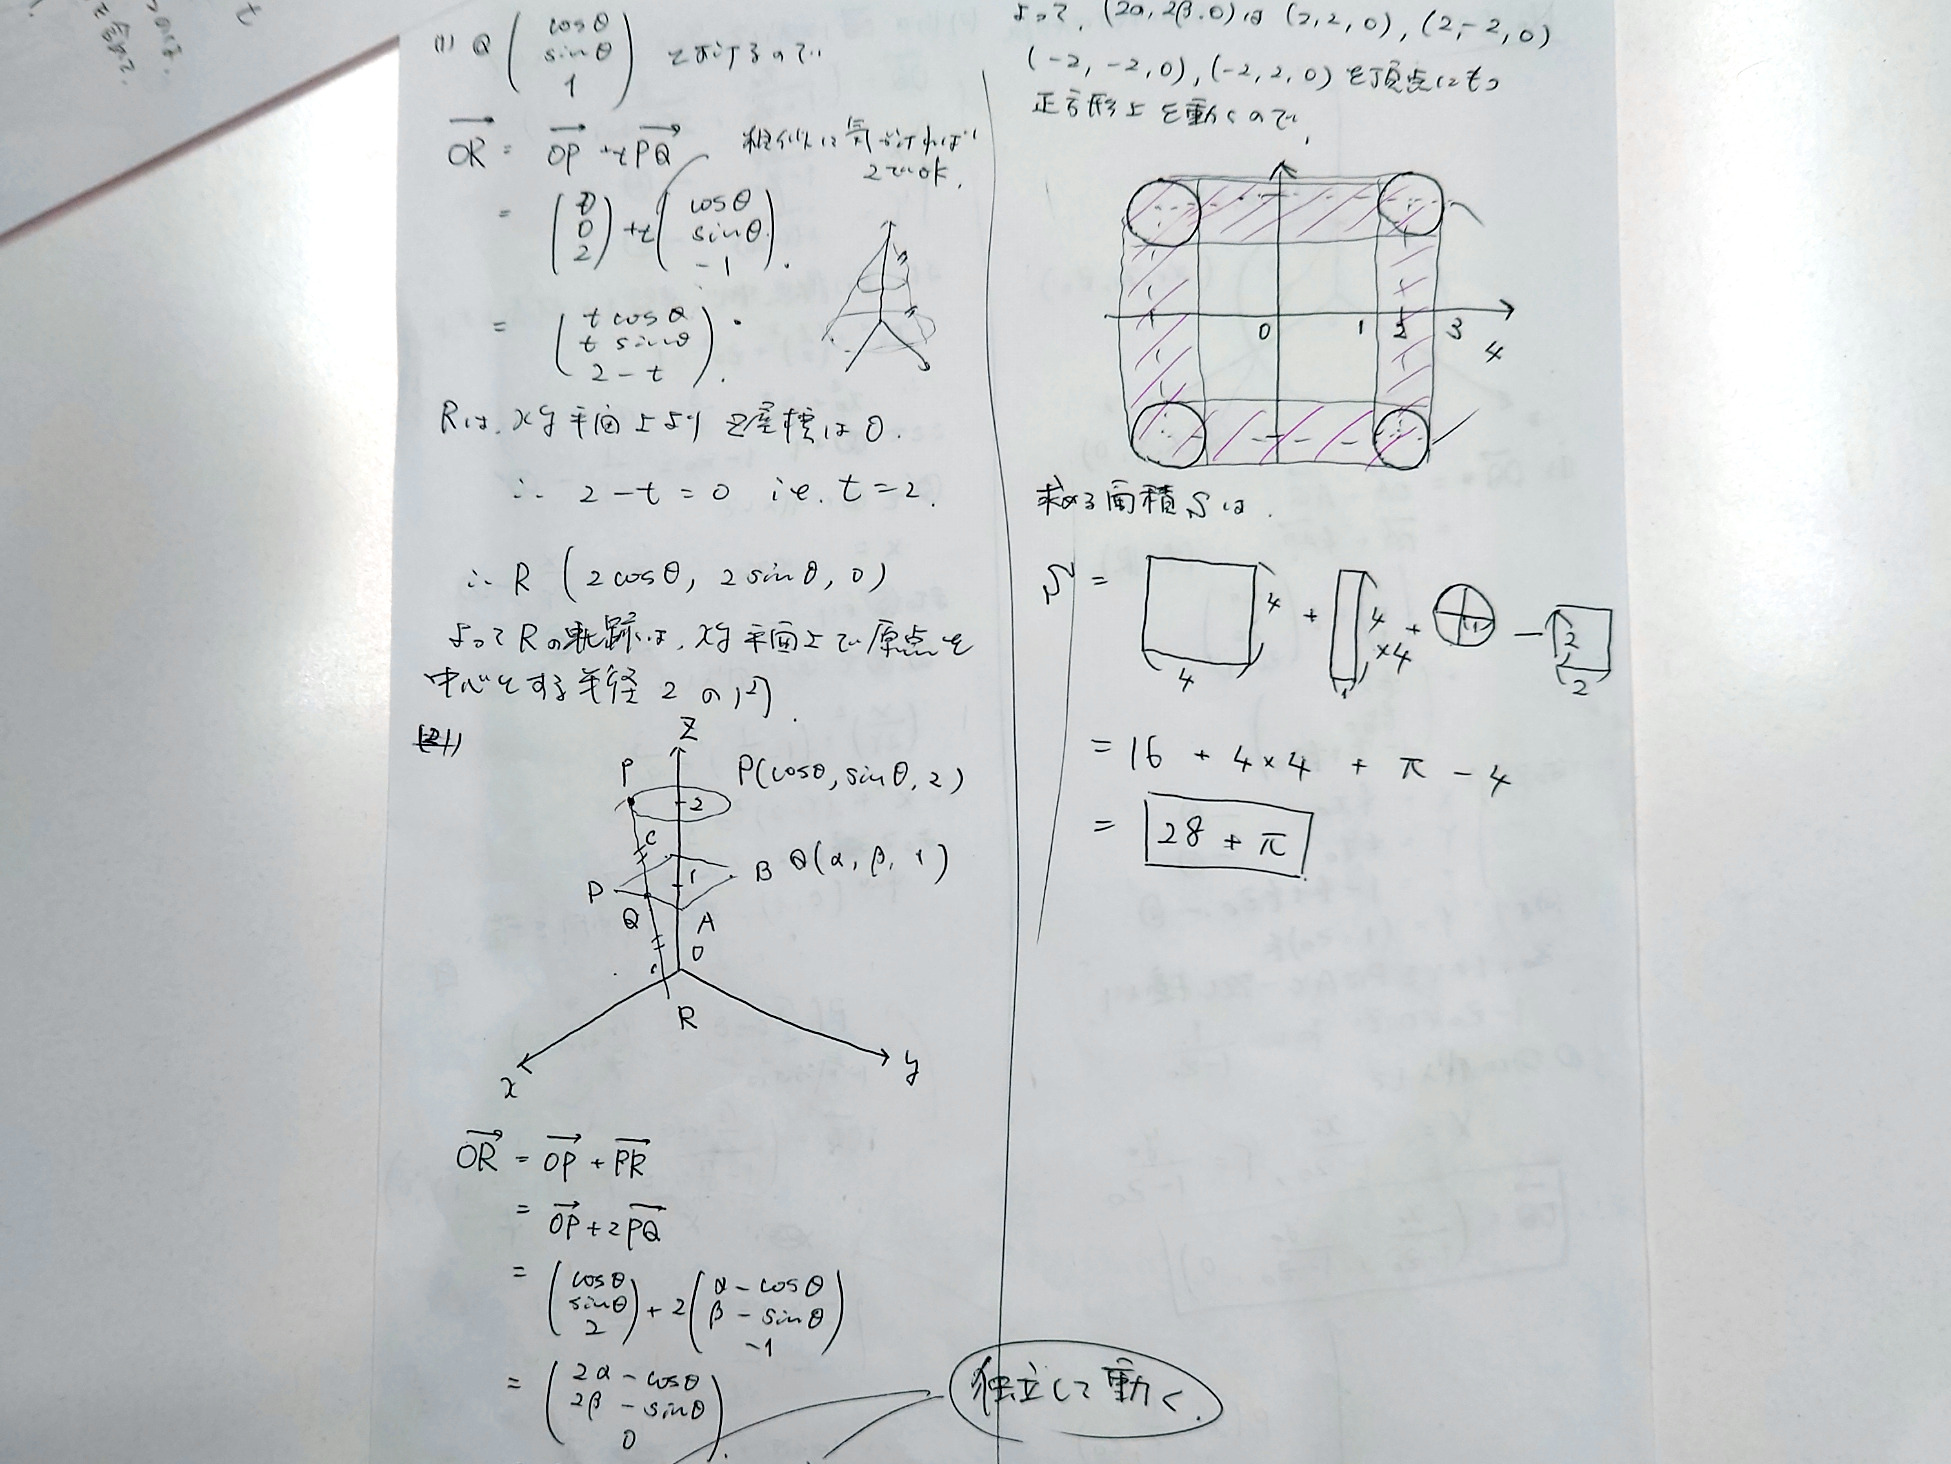 (1) Q (cosθ, sinθ, 1) とおけるので
OR = OP + tPQ
相似に気づければ
2でok.
= (0, 0, 2) + t(cosθ, sinθ, -1).
= (t cosθ, t sinθ, 2-t).
Rは、xy平面上より z座標は 0.
∴ 2-t=0 i.e. t=2.
∴ R (2cosθ, 2sinθ, 0)
よってRの軌跡は、xy平面上で原点を
中心とする半径 2 の円.
z
P
P(cosθ, sinθ, 2)
2
C
1
B
Q(α, β, 1)
D
Q
A
0
R
x
y
OR = OP + PR
= OP + 2PQ
= (cosθ, sinθ, 2) + 2(α-cosθ, β-sinθ, -1)
= (2α-cosθ, 2β-sinθ, 0).
独立して動く.
よって、(2α, 2β, 0)は (2, 2, 0), (2, -2, 0)
(-2, -2, 0), (-2, 2, 0) を頂点にもつ
正方形上を動くので、
0 1 2 3
4
求める面積Sは.
S = 4 4 + 4 1 ×4 + 1 - 2 2
= 16 + 4×4 + π - 4
= 28 + π